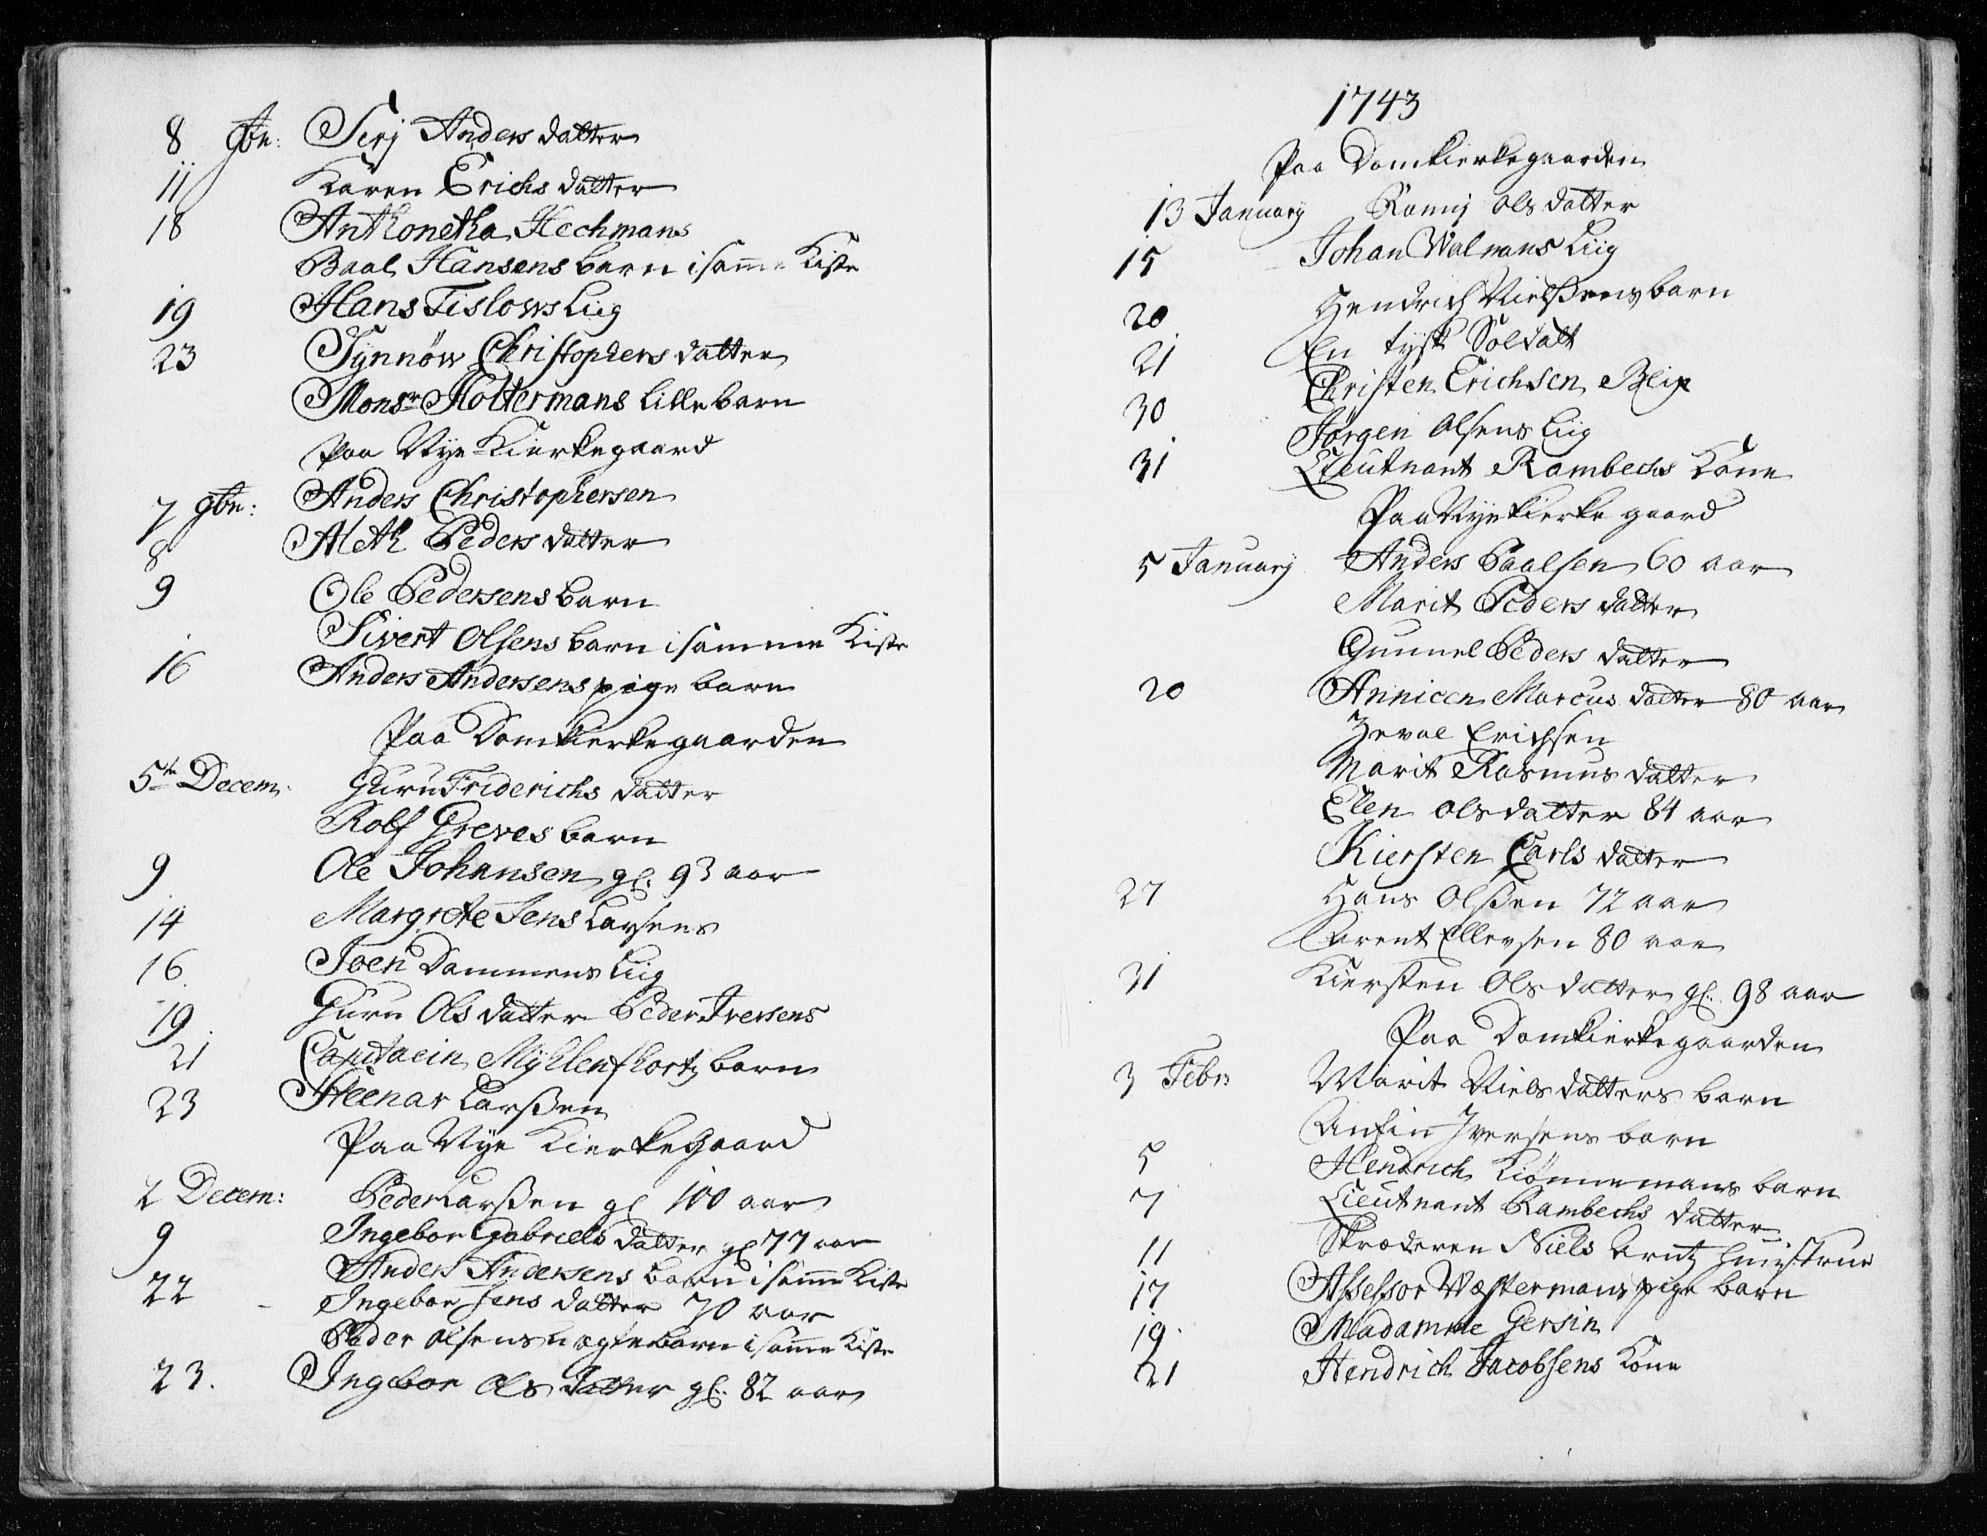 8 9br: Serj Anders datter
11 Karen Erichs datter
18 Anthonetha Hechmans
Baal Hansens barn i same Kiste
19 Hans Tislows Liig
23 Synnøw Christophers datter
Monsr Holtermans Lille barn
Paa Nye Kierkegaard
7 9br: Anders Christophersen
8 Aleth Peders datter
9 Ole Pedersens barn
Sivert Olsens barn i samme Kiste
16 Anders Andersens pige barn
Paa Domkierkegaarden
5te Decem: Guru Friderichs datter
Rolf Greves barn
9 Ole Johansen gl. 93 aar
14 Margrete Jens Larsens
16. Joen Dammens Liig
19. Guru Ols datter Peder Iversens
21 Capitaein barn
23 Steenar Larsßen
Paa Nye Kierkegaard
2 Decem: Peder Larsßen gl 100 aar
9 Ingebor Gabriels datter gl 77 aar
Anders Andersens barn i same Kiste
22 Ingebor Jens datter 70 aar
Peder Olsens barn i same Kiste
23. Ingebor Ols datter gl. 82 aar
1743
Paa Domkierkegaarden
13 January Ols datter
15 Johan Walmans Liig
20 Hendrich Nielßens barn
21 En tysk Soldatt
Christen Erichsen Blix
30 Jørgen Olsens Liig
31 Lieutnant Rambechs Kone
Paa Nye Kierke gaard
5 January Anders Paalsen 60 aar
Marit Peders datter
Gunnel Peders datter
20 Annicen Marcus datter 80 aar
Erichsen
Marit Rasmus datter
Elen Ols datter 84 aar
Kiersten Carls datter
27 Hans Olßen 72 aar
Arent Ellevsen 80 aar
31 Kiersten Ols datter gl. 98 aar
Paa Domkierkegaarden
3 Febr: Marit Niels datters barn
Anfin Iversens barn
5 Hendrich Kiønnemans barn
7 Lieutnant Rambechs datter
11 Skræderen Niels Arntz Hustrue
17 Assessor Westermans pige barn
19. Madamme Gersin
21 Hendrich Jacobsens Kone